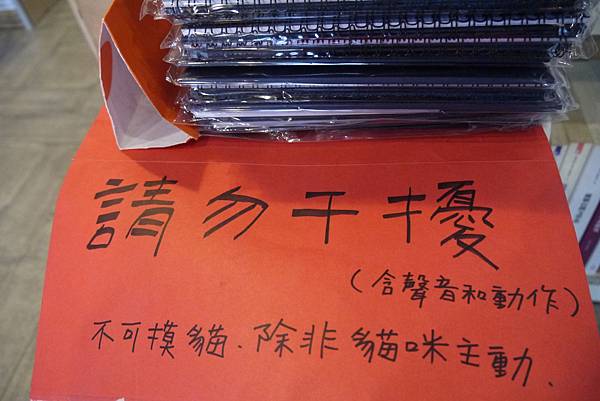 請勿干擾
（含聲音和動作）
不可摸貓、除非貓咪主動、